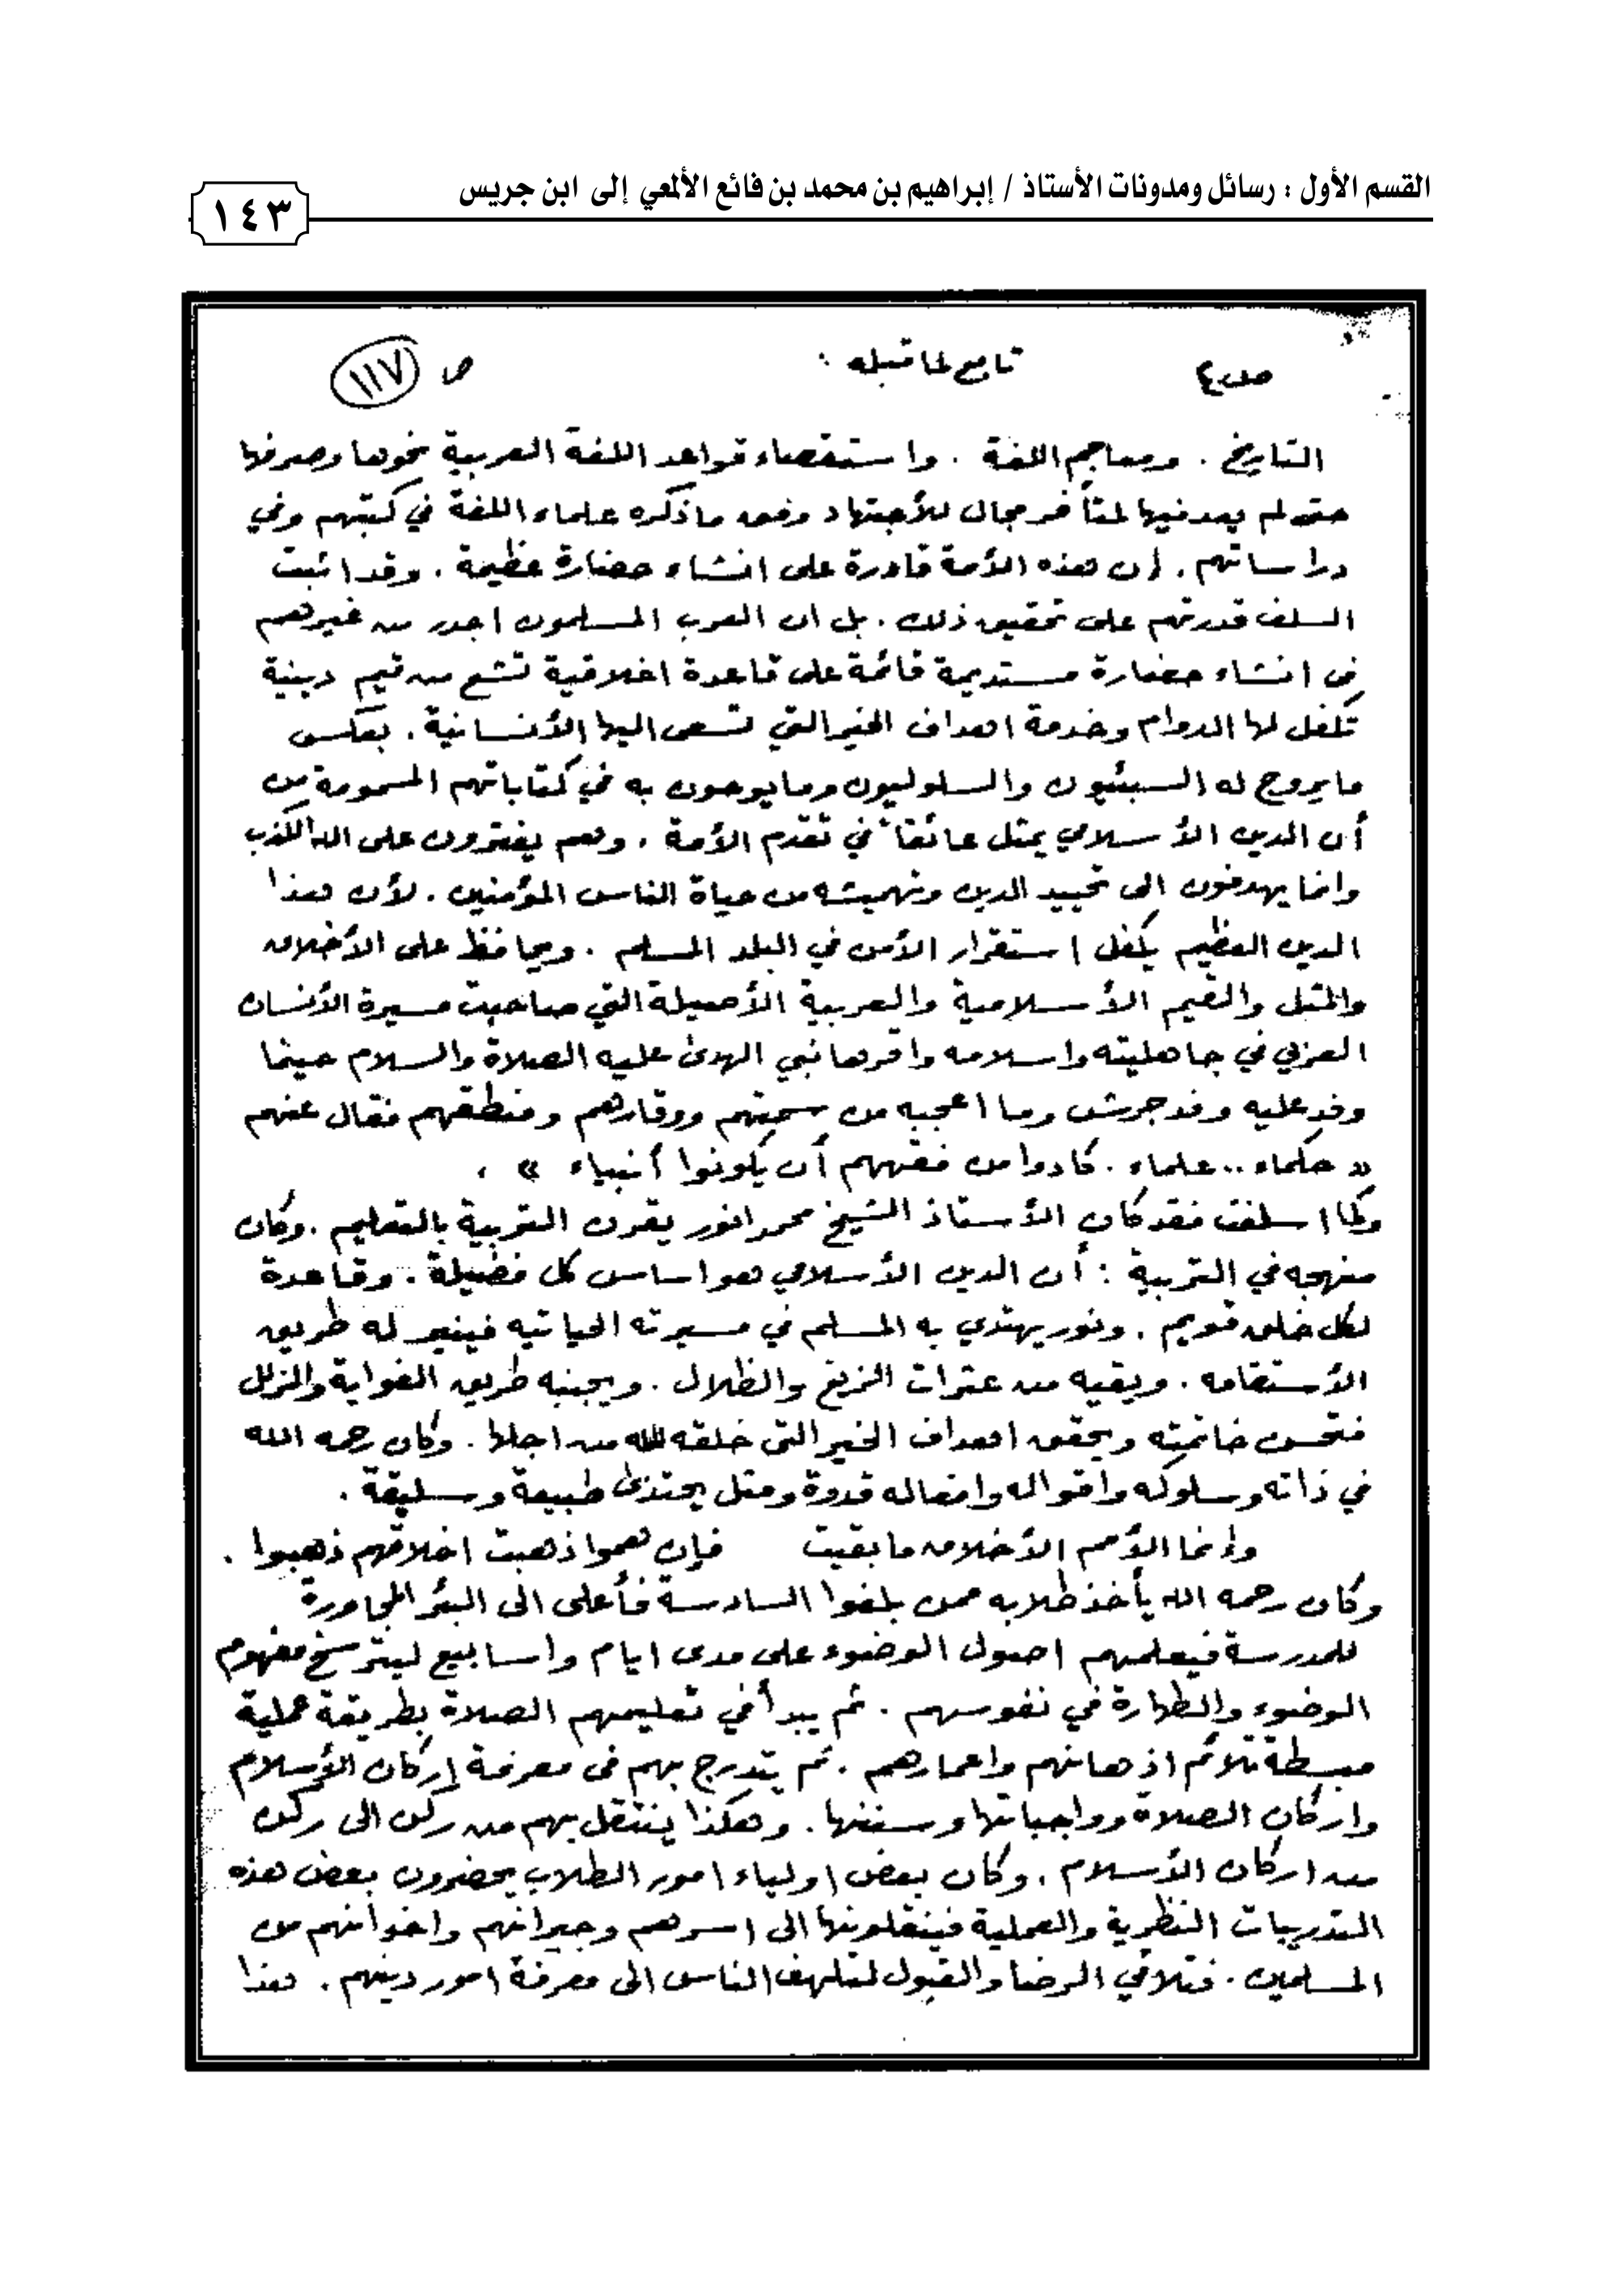 القسم الأول : رسائل ومدونات الأستاذ / إبراهيم بن محمد بن فائع الألمعي إلى ابن جريس
١٤٣
ص٤ تابع لما قبله : ص ١١٧
التاريخ . ومعاجم اللغة . واستقصاء قواعد اللغة العربية نحوها وصرفها
حتى لم يعد فيها لمتأخر مجال للأجتهاد وفق ما ذكره علماء اللغة في كتبهم وفي
دراساتهم . إن هذه الأمة قادرة على انشاء حضارة عظيمة . وقد اثبت
السلف قدرتهم على تحقيق ذلك . بل ان العرب المسلمون اجدر من غيرهم
في انشاء حضارة مستديمة قائمة على قاعدة اخلاقية تشع من قيم دينية
تكفل لها الدوام وخدمة اهداف الخير التي تسعى اليها الأنسانية . بعكس
ما يروج له السبئيون والسلوليون وما يوحون به في كتاباتهم المسمومة من
أن الدين الأسلامي يمثل عائقاً في تقدم الأمة . وهم يفترون على الله الكذب
وانما يهدفون الى تحييد الدين وتهميشه من حياة الناس المؤمنين . لأن هذا
الدين العظيم يكفل استقرار الأمن في البلد المسلم . ويحافظ على الأخلاق
والمثل والقيم الأسلامية والعربية الأصيلة التي صاحبت مسيرة الأنسان
العربي في جاهليته واسلامه واقرها نبي الهدى عليه الصلاة والسلام حينما
وفد عليه وفد جرش وما اعجبه من سمتهم ووقارهم ومنطقهم فقال عنهم
« حكماء .. علماء . كادوا من فقههم أن يكونوا أنبياء » .
وكما اسلفت فقد كان الأستاذ الشيخ محمد انور يقرن التربية بالتعليم . وكان
منهجه في التربية : أن الدين الأسلامي هو اساس كل فضيلة . وقاعدة
لكل خلق قويم . ونور يهتدي به المسلم في مسيرته الحياتيه فينير له طريق
الأستقامه . ويقيه من عثرات الزيغ والظلال . ويجنبه طريق الغواية والزلل
فتحسن خاتمته ويحقق اهداف الخير التي خلقه الله من اجلها . وكان رحمه الله
في ذاته وسلوكه واقواله وافعاله قدوة ومثل يحتذى طبيعة وسليقة .
وإنما الأمم الأخلاق ما بقيت فإن همو اذهبت اخلاقهم ذهبوا .
وكان رحمه الله يأخذ طلابه ممن بلغوا السادسة فأعلى الى البئر المجاورة
للمدرسة فيعلمهم اصول الوضوء على مدى ايام واسابيع ليترسخ مفهوم
الوضوء والطهارة في نفوسهم . ثم يبدأ في تعليمهم الصلاة بطريقة عملية
مبسطة تلائم اذهانهم واعمارهم . ثم يتدرج بهم في معرفة إركان الأسلام
واركان الصلاة وواجباتها وسننها . وهكذا ينتقل بهم من ركن الى ركن
من اركان الأسلام . وكان بعض اولياء امور الطلاب يحضرون بعض هذه
التدريبات النظرية والعملية فينقلونها الى اسرهم وجيرانهم واخوانهم من
المسلمين . فتلاقي الرضا والقبول لتلهف الناس الى معرفة امور دينهم . هذا